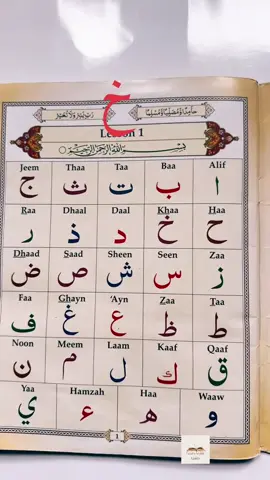 خ
حَامِدًا وَمُصَلِّيًا وَمُسَلِّمًا رَبِّ يَسِّرْ وَلَا تُعَسِّرْ
Lesson 1
بِسْمِ اللهِ الرَّحْمٰنِ الرَّحِيْمِ
Jeem Thaa Taa Baa Alif
ا ب ت ث ج
Raa Dhaal Daal Khaa Haa
ح خ د ذ ر
Dhaad Saad Sheen Seen Zaa
ز س ش ص ض
Faa Ghayn ‘Ayn Zaa Taa
ط ظ ع غ ف
Noon Meem Laam Kaaf Qaaf
ق ك ل م ن
Yaa Hamzah Haa Waaw
و ه ء ي
1